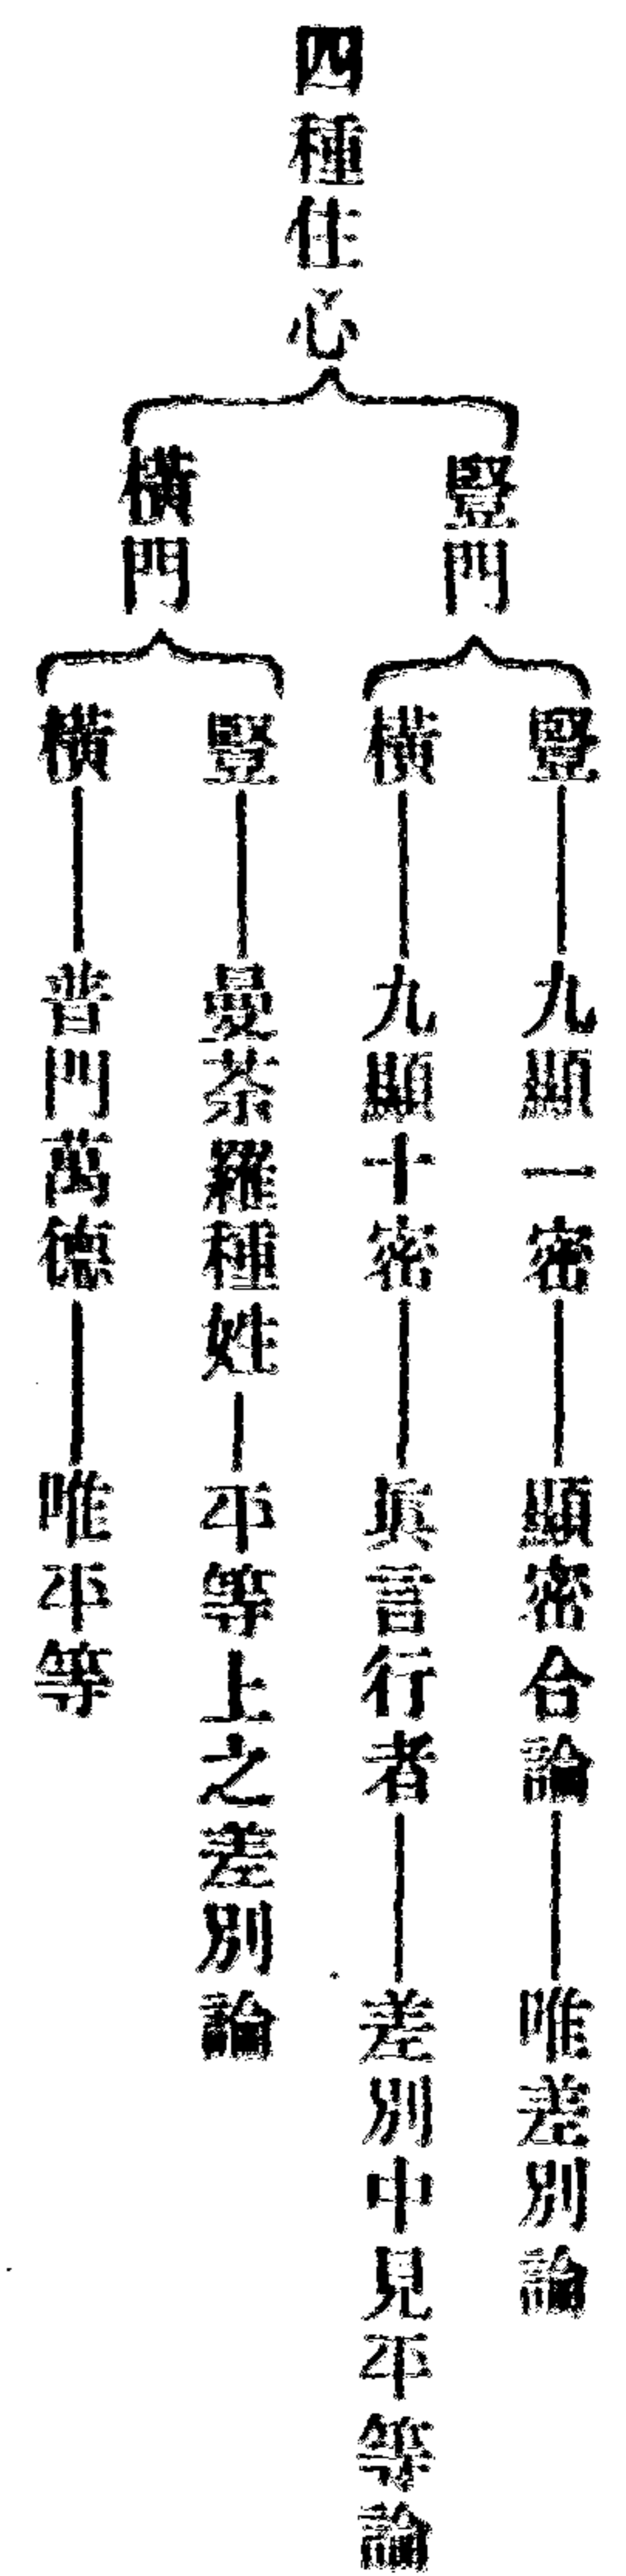 四種住心
豎門
豎
九顯一密
顯密合論
唯差別論
橫
九顯十密
眞言行者
差別中見平等論
橫門
豎
曼荼羅種姓
平等上之差別論
橫
普門萬德
唯平等